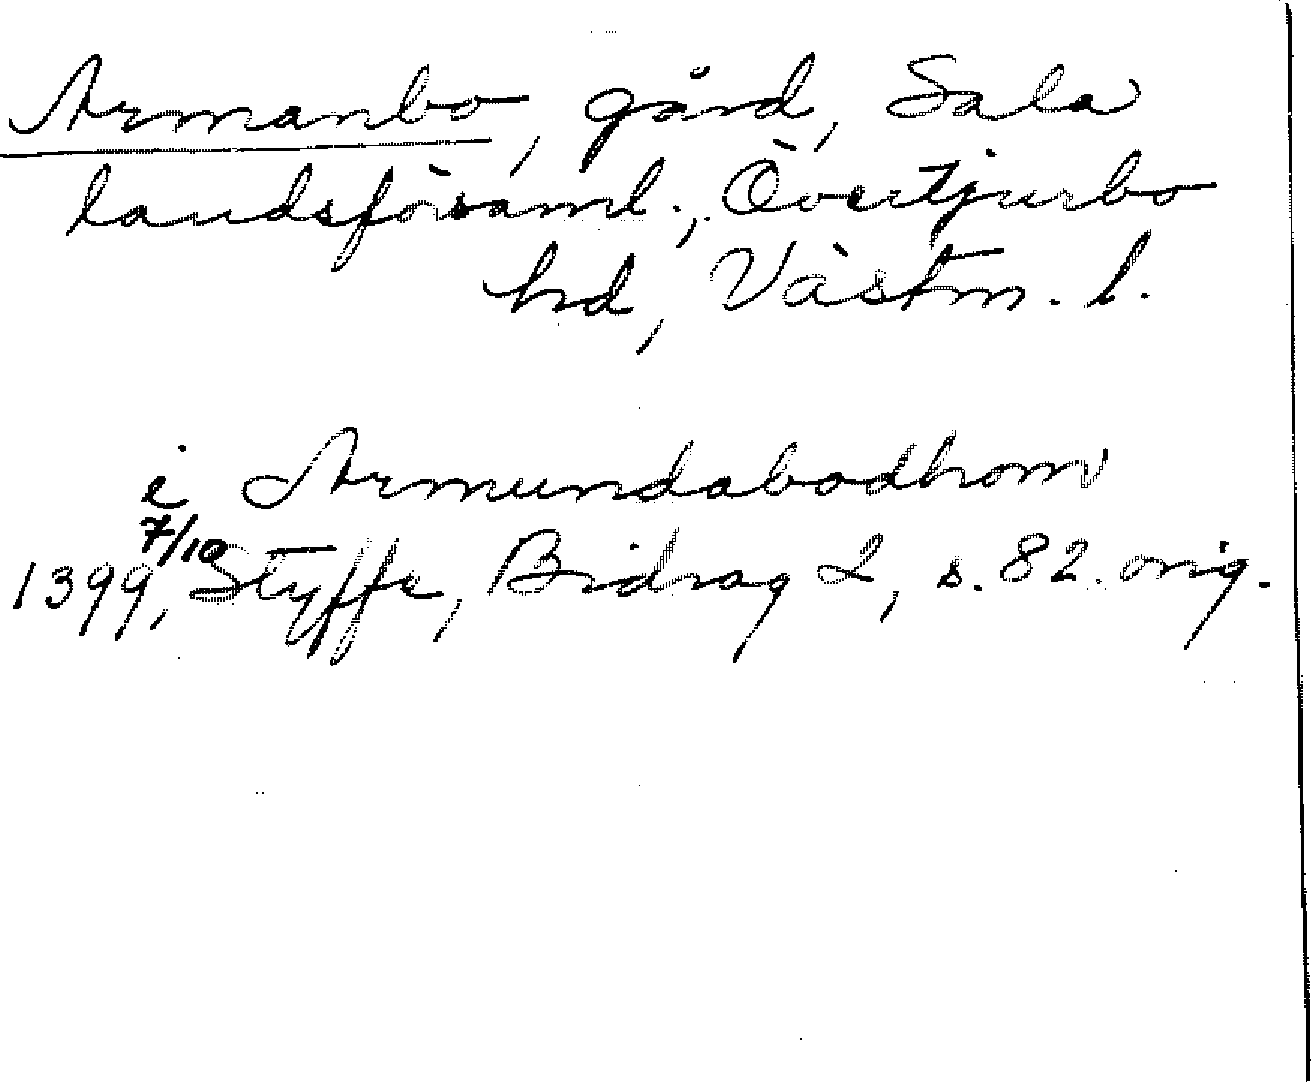 Armanbo, gård, Sala
landsförsaml., Övertjurbo
hd, Västm. l.
i Armundabodhom
7/10
1399, Styffe, Bidrag 2, s. 82. orig.